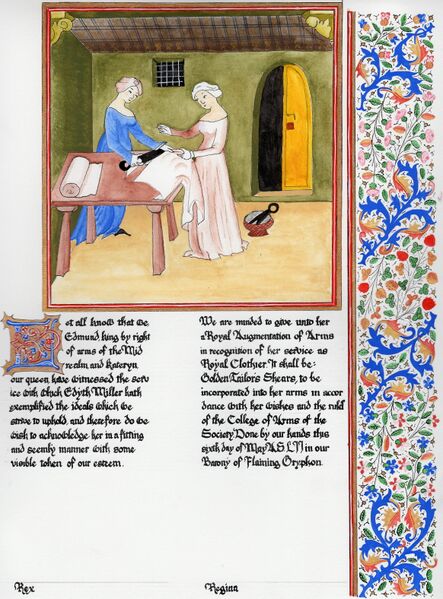 Let all know that We
Edmund, king by right
of arms of the Mid
realm, and Kateryn,
our queen, have witnessed the serv
ice with which Edyth Miller hath
exemplified the ideals which we
strive to uphold, and therefore do we
wish to acknowledge her in a fitting
and seemly manner with some
visible token of our esteem.
We are minded to give unto her
a Royal Augmentation of Arms
in recognition of her service as
Royal Clothier. It shall be:
Golden Tailors Shears, to be
incorporated into her arms in accor
dance with her wishes and the rules
of the College of Arms of the
Society. Done by our hands this
sixth day of May A.S. LII in our
Barony of Flaming Gryphon.
Rex
Regina